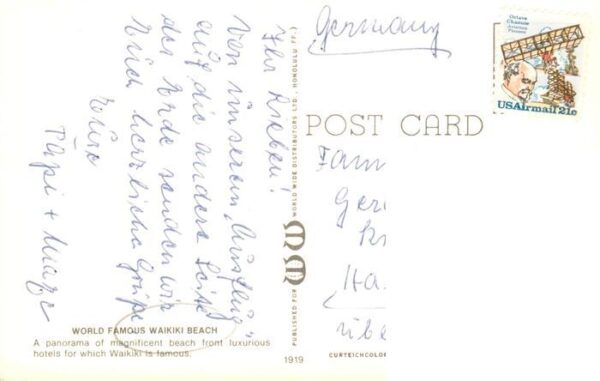 Germany
Octave
Chanute
Aviation
Pioneer
USAirmail 21c
POST CARD
Fam
Ger
Ha
übe
Ihr Lieben!
Von unserem „Ausflug"
auf die andere Seite
der Erde senden wir
Euch herzliche Grüße
Eure
Papi + Mutzi
WORLD FAMOUS WAIKIKI BEACH
A panorama of magnificent beach front luxurious
hotels for which Waikiki is famous.
PUBLISHED FOR MM WORLD WIDE DISTRIBUTORS LTD., HONOLULU
1919
CURTEICHCOLOR